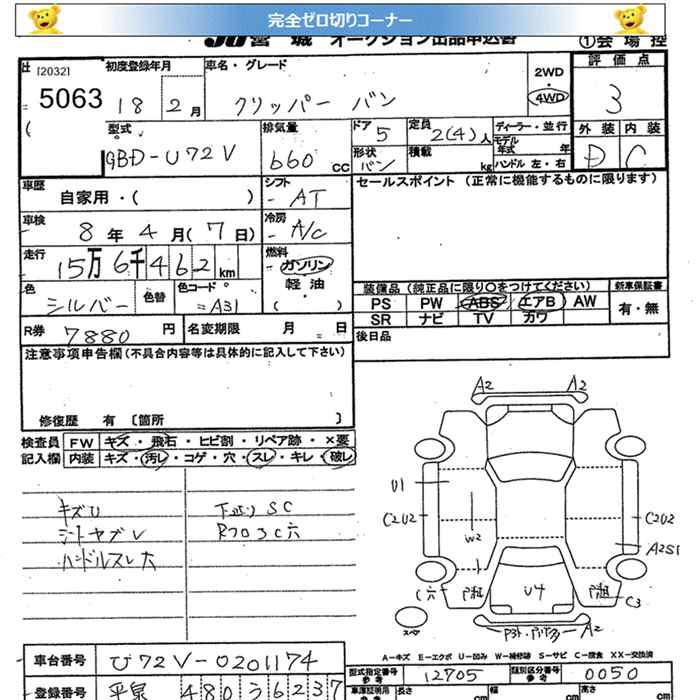 完全ゼロ切りコーナー
JU宮 城 オークション出品申込書 ①会 場 控
[2032] 初度登録年月 車名・グレード 2WD・4WD 評 価 点
5063 18 2月 クリッパー バン 3
型式 排気量 ドア 定員 ディーラー・並行 外 装 内 装
GBD-U72V 660 CC 5 2(4)人 モデル年式 年 D C
形状 バン 積載 kg ハンドル 左・右
車歴 シフト セールスポイント (正常に機能するものに限ります)
自家用・( ) - AT
車検 冷房
8年 4月(7日) - A/C
走行 燃料
15万6千462km ガソリン
軽 油 装備品 (純正品に限り○をつけてください) 新車保証書
色 色替 色コード ( ) PS PW ABS エアB AW 有・無
シルバー A31 SR ナビ TV カワ
R券 7880円 名変期限 月 日 後日品
注意事項申告欄(不具合内容等は具体的に記入して下さい)
修復歴 有 [箇所 ]
検査員 FW キズ・飛石・ヒビ割・リペア跡・×要
記入欄 内装 キズ・汚レ・コゲ・穴・スレ・キレ・破レ
A2 A2
キズU 下廻りSC
シートヤブレ
ハンドルスレ大
U1
C2U2 W2 C2U2
A2S1
U4 C3
スペア
A-キズ E-エクボ U-凹み W-補修跡 S-サビ C-腐食 XX-交換済
車台番号 U72V-0201174 型式指定番号 12705 類別区分番号 0050
登録番号 480う6237 車庫証明用参考 長さ cm 幅 cm 高さ cm